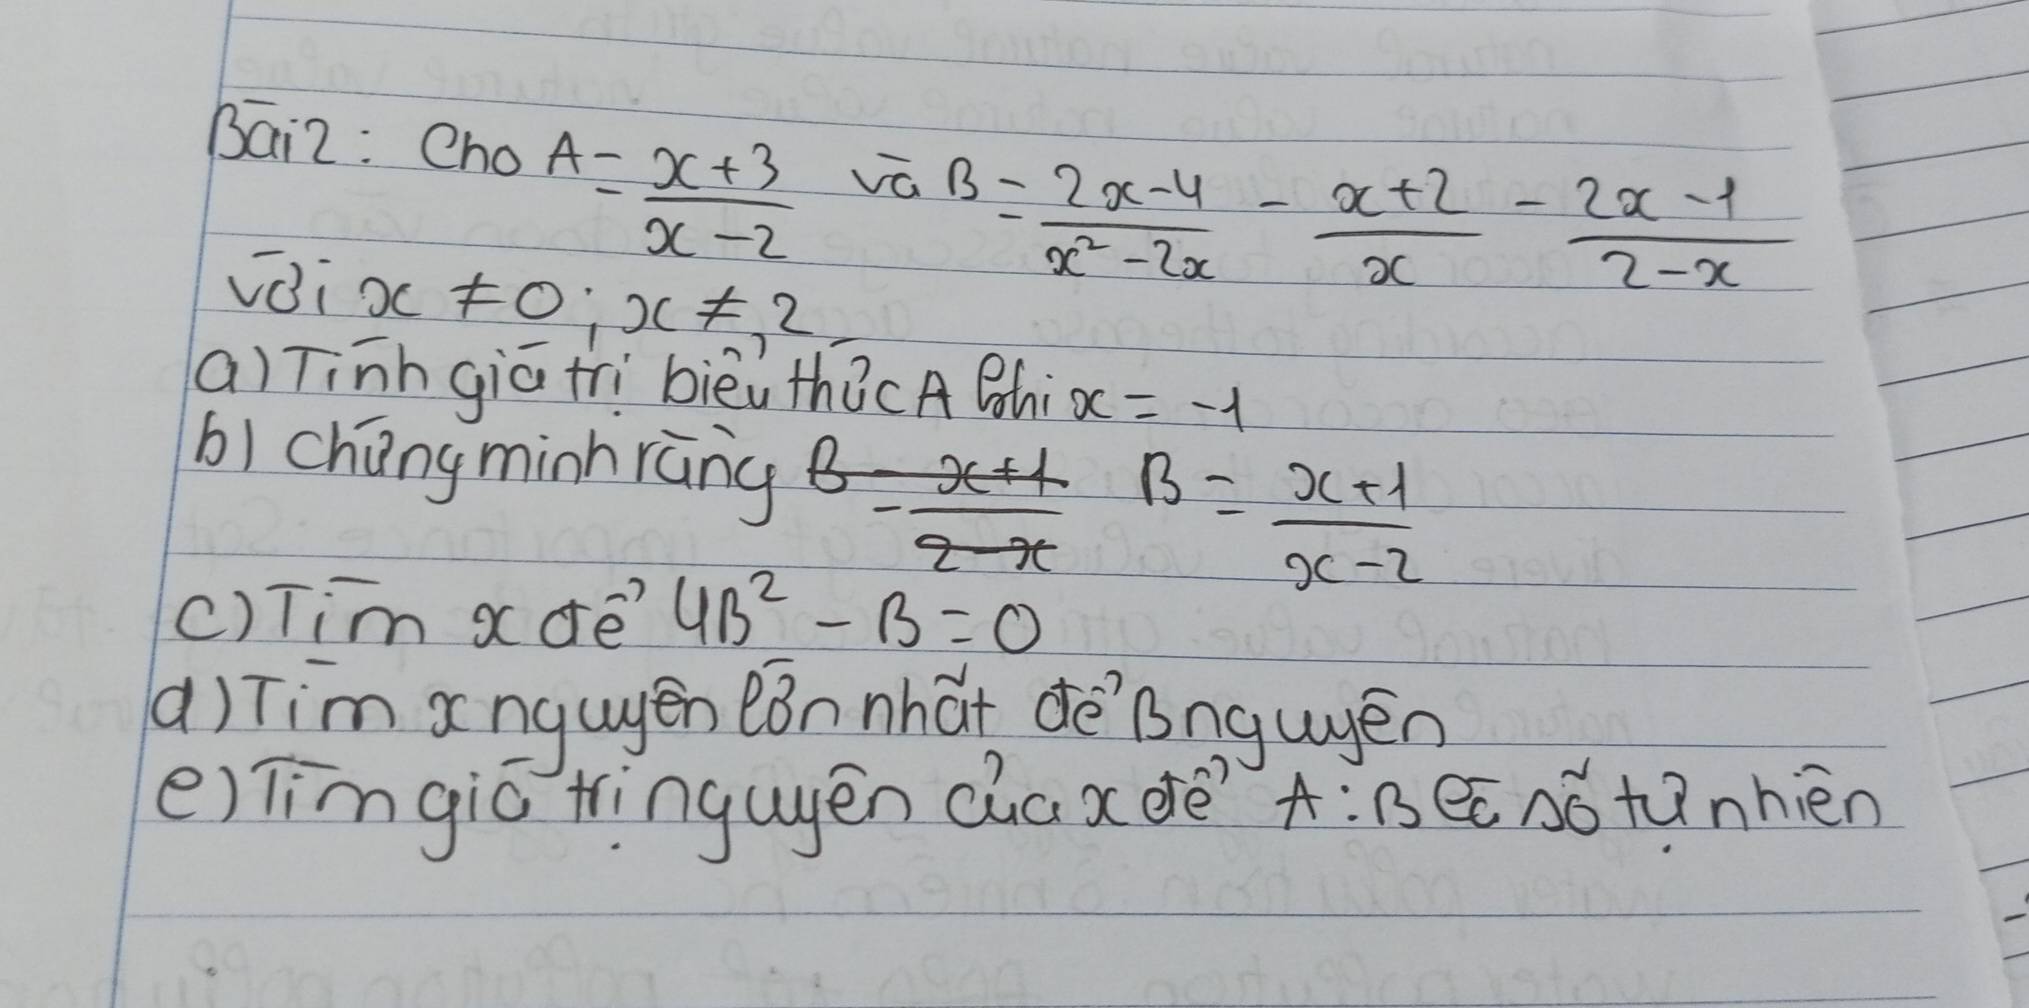 Bài 2: Cho A = \frac{x+3}{x-2} và B = \frac{2x-4}{x²-2x} - \frac{x+2}{x} - \frac{2x-1}{2-x}
với x ≠ 0; x ≠ 2
a) Tính giá trị biểu thức A khi x = -1
b) Chứng minh rằng ~~B = \frac{x+1}{2-x}~~ B = \frac{x+1}{x-2}
c) Tìm x để 4B² - B = 0
d) Tìm x nguyên lớn nhất để B nguyên
e) Tìm giá trị nguyên của x để A : B là số tự nhiên